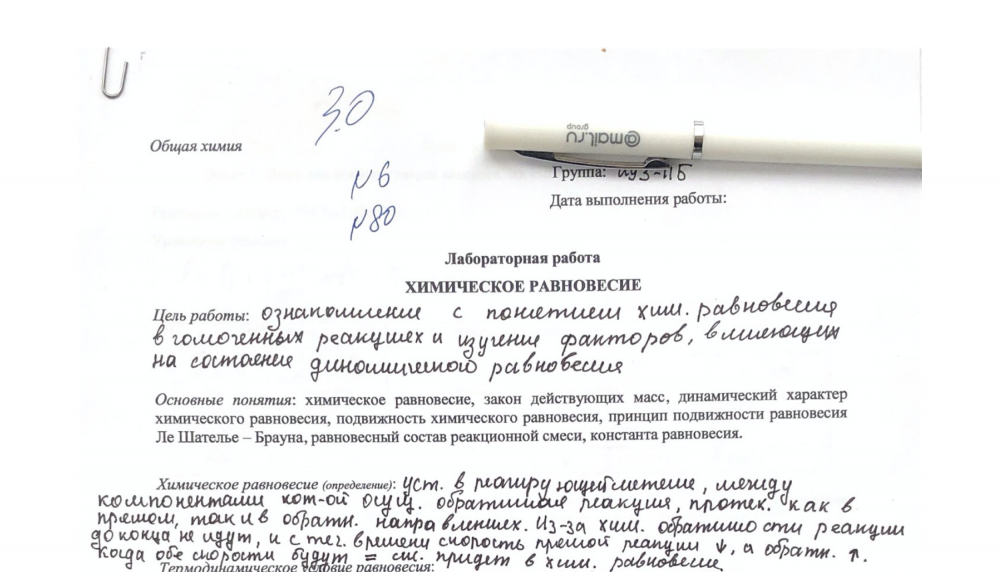 3.0
Общая химия
@mail.ru
group
N6
Группа: ИУ3-11Б
N80
Дата выполнения работы:
Лабораторная работа
ХИМИЧЕСКОЕ РАВНОВЕСИЕ
Цель работы: ознакомление с понятием хим. равновесия
в гомогенных реакциях и изучение факторов, влияющих
на состояние динамического равновесия
Основные понятия: химическое равновесие, закон действующих масс, динамический характер
химического равновесия, подвижность химического равновесия, принцип подвижности равновесия
Ле Шателье – Брауна, равновесный состав реакционной смеси, константа равновесия.
Химическое равновесие (определение): уст. в реагирующей системе, между
компонентами кот-ой осущ. обратимая реакция, протек. как в
прямом, так и в обратн. направлениях. Из-за хим. обратимости реакции
до конца не идут, и с теч. времени скорость прямой реакции ↓, а обратн. ↑.
Когда обе скорости будут = сис. придет в хим. равновесие
Термодинамическое условие равновесия: